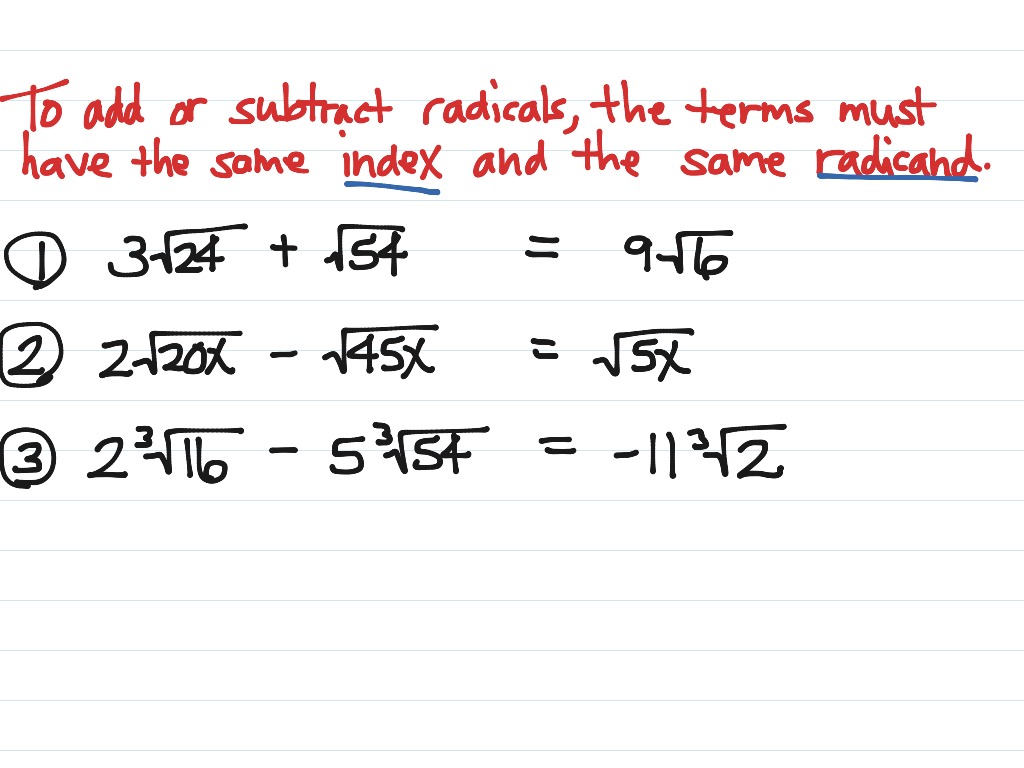 To add or subtract radicals, the terms must
have the same index and the same radicand.
① 3√24 + √54 = 9√6
② 2√20x - √45x = √5x
③ 2∛16 - 5∛54 = -11∛2